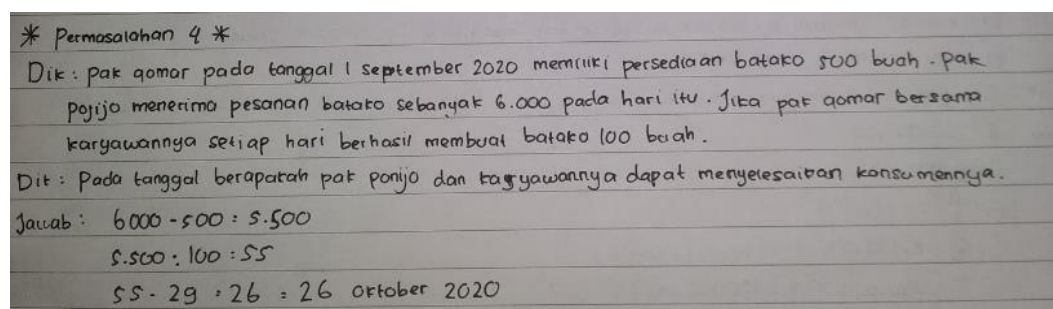 * Permasalahan 4 *
Dik : pak qomar pada tanggal 1 september 2020 memiliki persediaan batako 500 buah . pak
ponijo menerima pesanan batako sebanyak 6.000 pada hari itu . Jika pak qomar bersama
karyawannya setiap hari berhasil membuat batako 100 buah .
Dit : Pada tanggal berapakah pak ponijo dan karyawannya dapat menyelesaikan konsumennya .
Jawab : 6000 - 500 : 5.500
5.500 : 100 : 55
55 - 29 : 26 : 26 oktober 2020